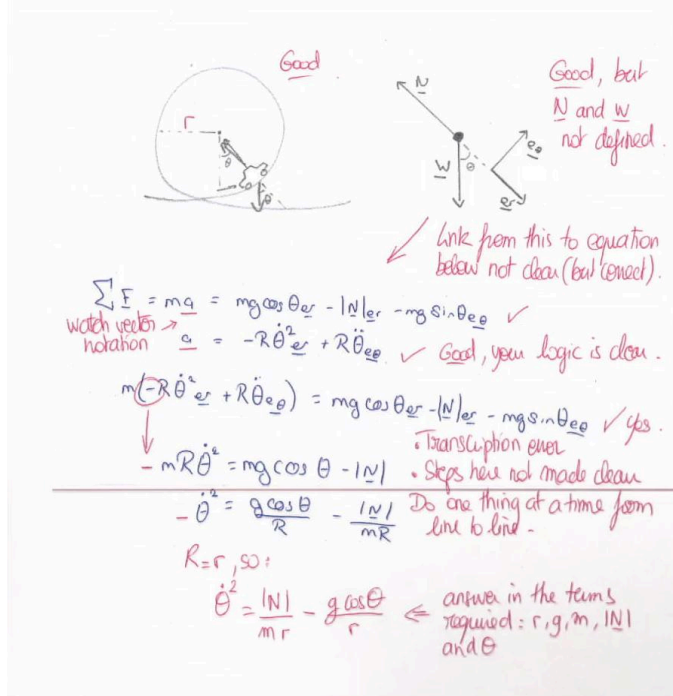 Good
r
θ
θ
N
W
θ
eθ
er
Good, but
N and W
not defined.
Link from this to equation
below not clear (but correct).
∑F = ma = mg cos θ er - |N| er - mg sin θ eθ ✓
watch vector → notation
a = -Rθ̇² er + Rθ̈ eθ ✓ Good, your logic is clear.
m(-Rθ̇² er + Rθ̈ eθ) = mg cos θ er - |N| er - mg sin θ eθ ✓ yes.
• Transcription error
- mRθ̇² = mg cos θ - |N| • Steps here not made clear
Do one thing at a time from
line to line.
- θ̇² = g cos θ / R - |N| / mR
R = r, so:
θ̇² = |N| / m r - g cos θ / r ⇐ answer in the terms
required: r, g, m, |N|
and θ